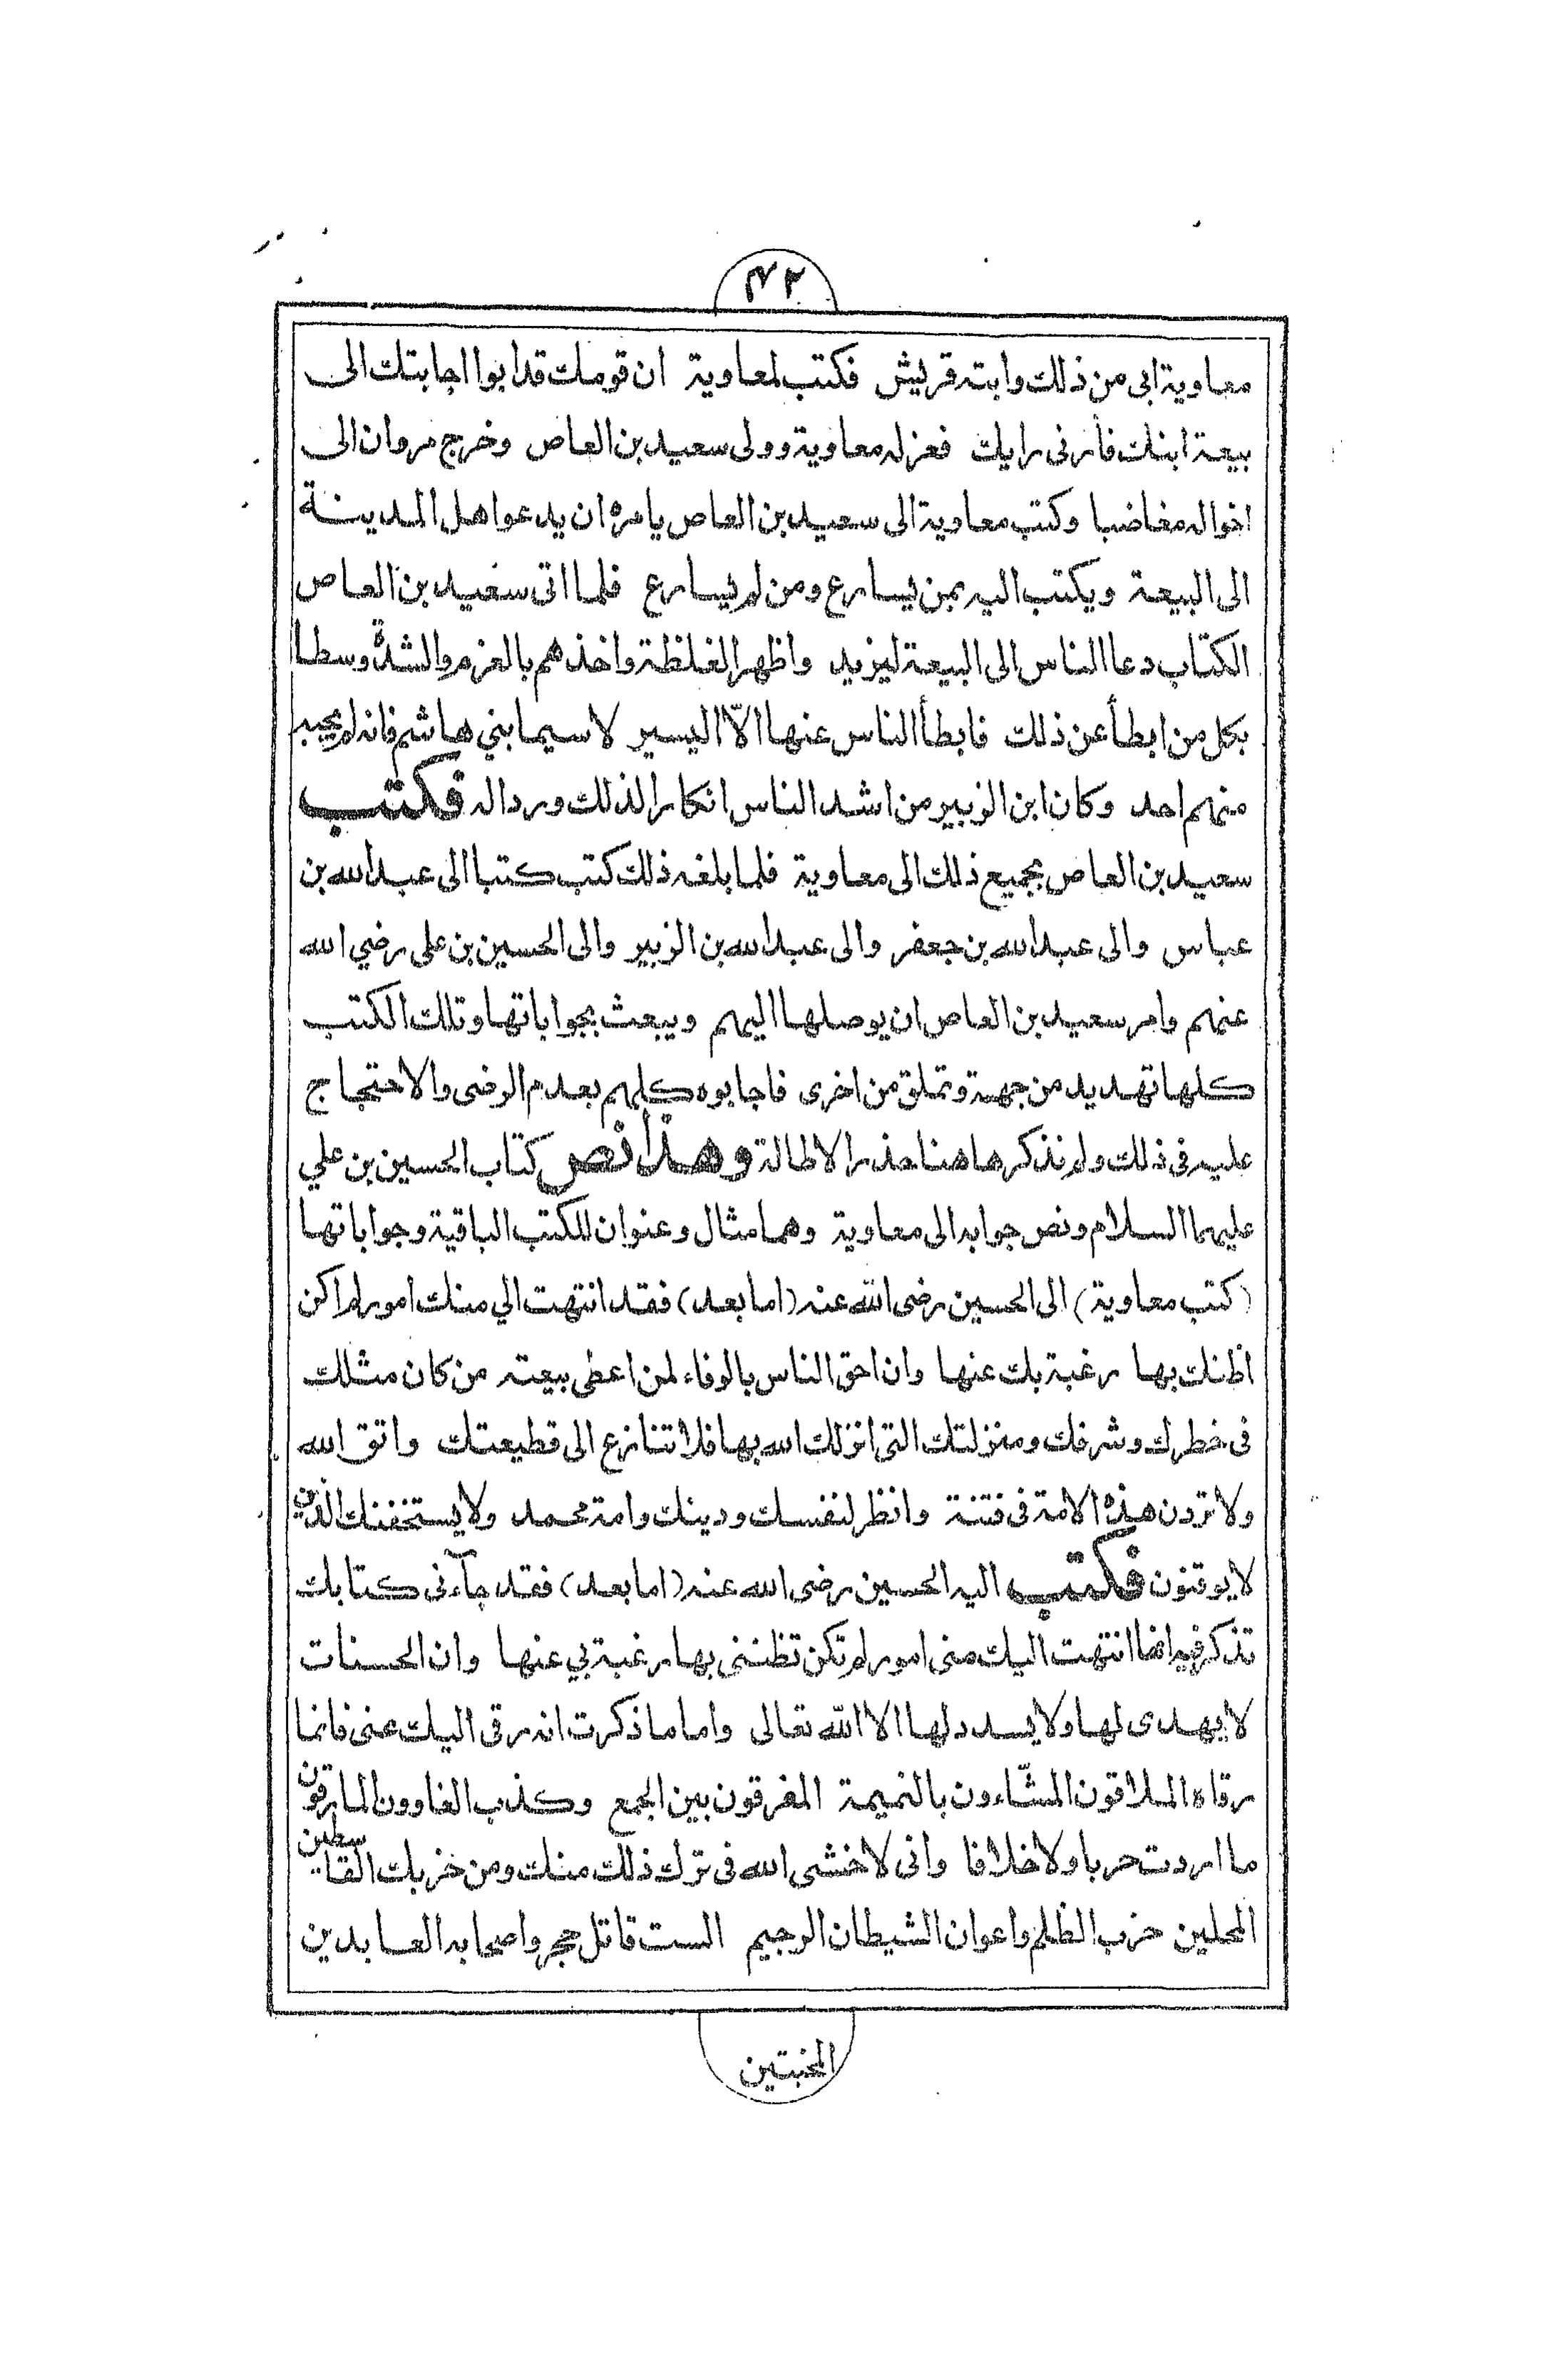 ٤٢
معاوية ابى من ذلك وابته قريش فكتب لمعاوية ان قومك قد ابوا اجابتك الى
بيعة ابنك فأرنى رايك فعزله معاوية وولى سعيد بن العاص وخرج مروان الى
اخواله مغاضبا وكتب معاوية الى سعيد بن العاص يامره ان يدعو اهل المدينة
الى البيعة ويكتب اليه بمن يسارع ومن لم يسارع فلما اتى سعيد بن العاص
الكتاب دعا الناس الى البيعة ليزيد واظهر الغلظة واخذهم بالعزم والشدة وسطا
بكل من ابطأ عن ذلك فابطأ الناس عنها الّا اليسير لا سيما بني هاشم فانه لم يجبه
منهم احد وكان ابن الزبير من اشد الناس انكارا لذلك وردا له فكتب
سعيد بن العاص بجميع ذلك الى معاوية فلما بلغه ذلك كتب كتبا الى عبد الله بن
عباس والى عبد الله بن جعفر والى عبد الله بن الزبير والى الحسين بن على رضي الله
عنهم وامر سعيد بن العاص ان يوصلها اليهم ويبعث بجواباتها وتلك الكتب
كلها تهديد من جهة وتملق من اخرى فاجابوه كلهم بعدم الرضى والاحتجاج
عليه فى ذلك ولم نذكرها هنا حذر الاطالة وهذا نص كتاب الحسين بن علي
عليهما السلام ونص جوابه الى معاوية وهما مثال وعنوان للكتب الباقية وجواباتها
(كتب معاوية) الى الحسين رضى الله عنه (اما بعد) فقد انتهت الي منك امور لم اكن
اظنك بها رغبة بك عنها وان احق الناس بالوفاء لمن اعطى بيعته من كان مثلك
فى خطرك وشرفك ومنزلتك التى انزلك الله بها فلا تنازع الى قطيعتك واتق الله
ولا تردن هذه الامة فى فتنة وانظر لنفسك ودينك وامة محمد ولا يستخفنك الذين
لا يوقنون فكتب اليه الحسين رضى الله عنه (اما بعد) فقد جآءنى كتابك
تذكر فيه انها انتهت اليك منى امور لم تكن تظننى بها رغبة بي عنها وان الحسنات
لا يهدى لها ولا يسدد لها الا الله تعالى واما ما ذكرت انه رقى اليك عنى فانما
رقاه الملاقون المشّاءون بالنميمة المفرقون بين الجمع وكذب الغاوون المارقون
ما اردت حربا ولا خلافا وانى لاخشى الله فى ترك ذلك منك ومن حزبك القاسطين
المحلين حزب الظلم واعوان الشيطان الرجيم الست قاتل حجر واصحابه العابدين
المخبتين